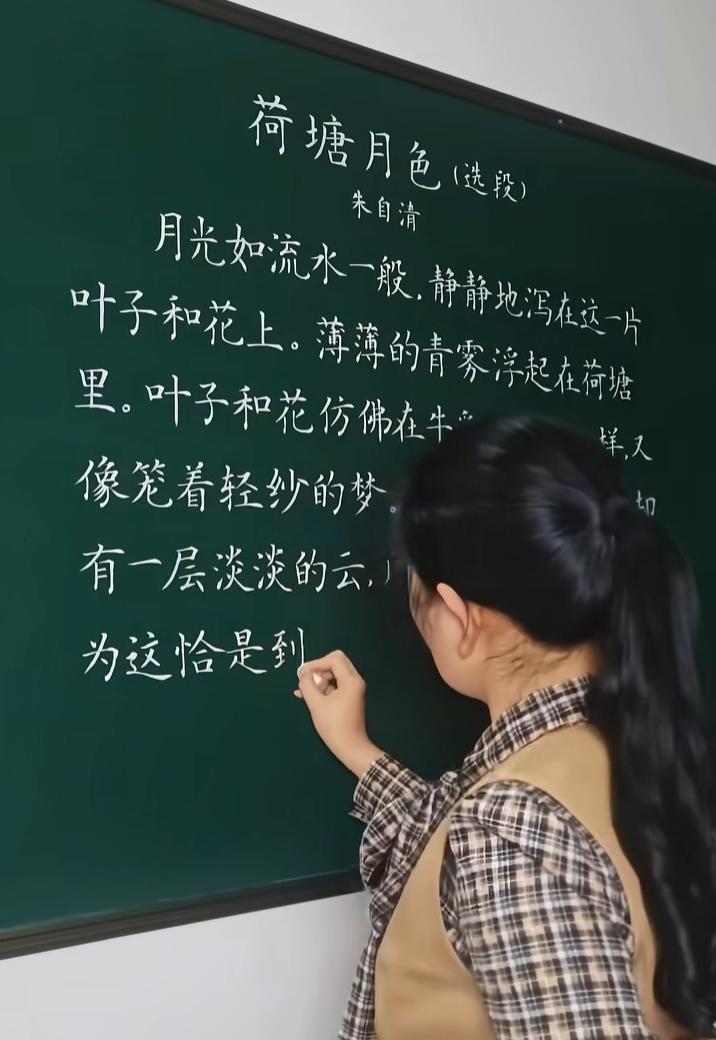 荷塘月色(选段)
朱自清
月光如流水一般,静静地泻在这一片
叶子和花上。薄薄的青雾浮起在荷塘
里。叶子和花仿佛在牛 样,又
像笼着轻纱的梦。 却
有一层淡淡的云,
为这恰是到